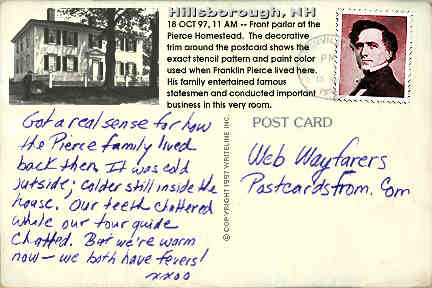 Hillsborough, NH
18 OCT 97, 11 AM -- Front parlor at the
Pierce Homestead. The decorative
trim around the postcard shows the
exact stencil pattern and paint color
used when Franklin Pierce lived here.
His family entertained famous
statesmen and conducted important
business in this very room.
Got a real sense for how
the Pierce family lived
back then. It was cold
outside; colder still inside the
house. Our teeth chattered
while our tour guide
chatted. But we're warm
now – we both have fevers!
xxoo
© COPYRIGHT 1997 WRITELINE INC.
POST CARD
Web Wayfarers
Postcardsfrom.com
PM